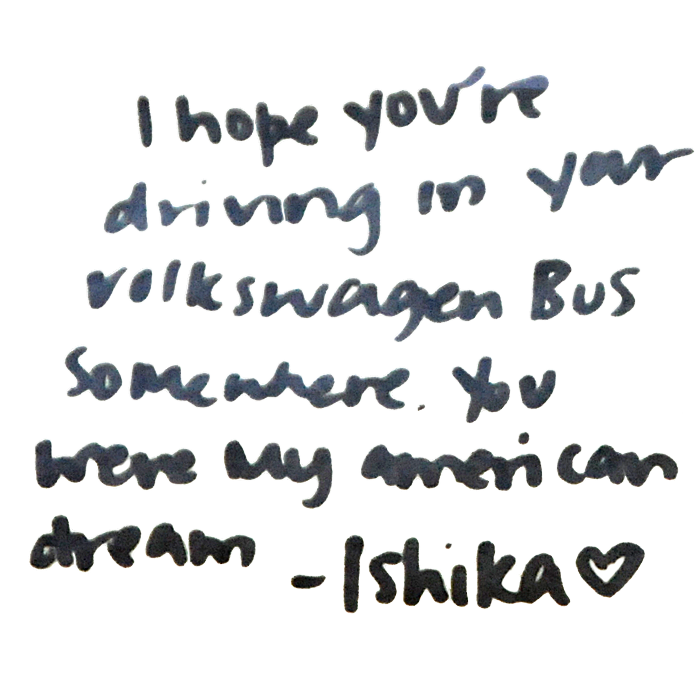 I hope you're
driving in your
volkswagen Bus
Somewhere. You
were my american
dream
-Ishika♡